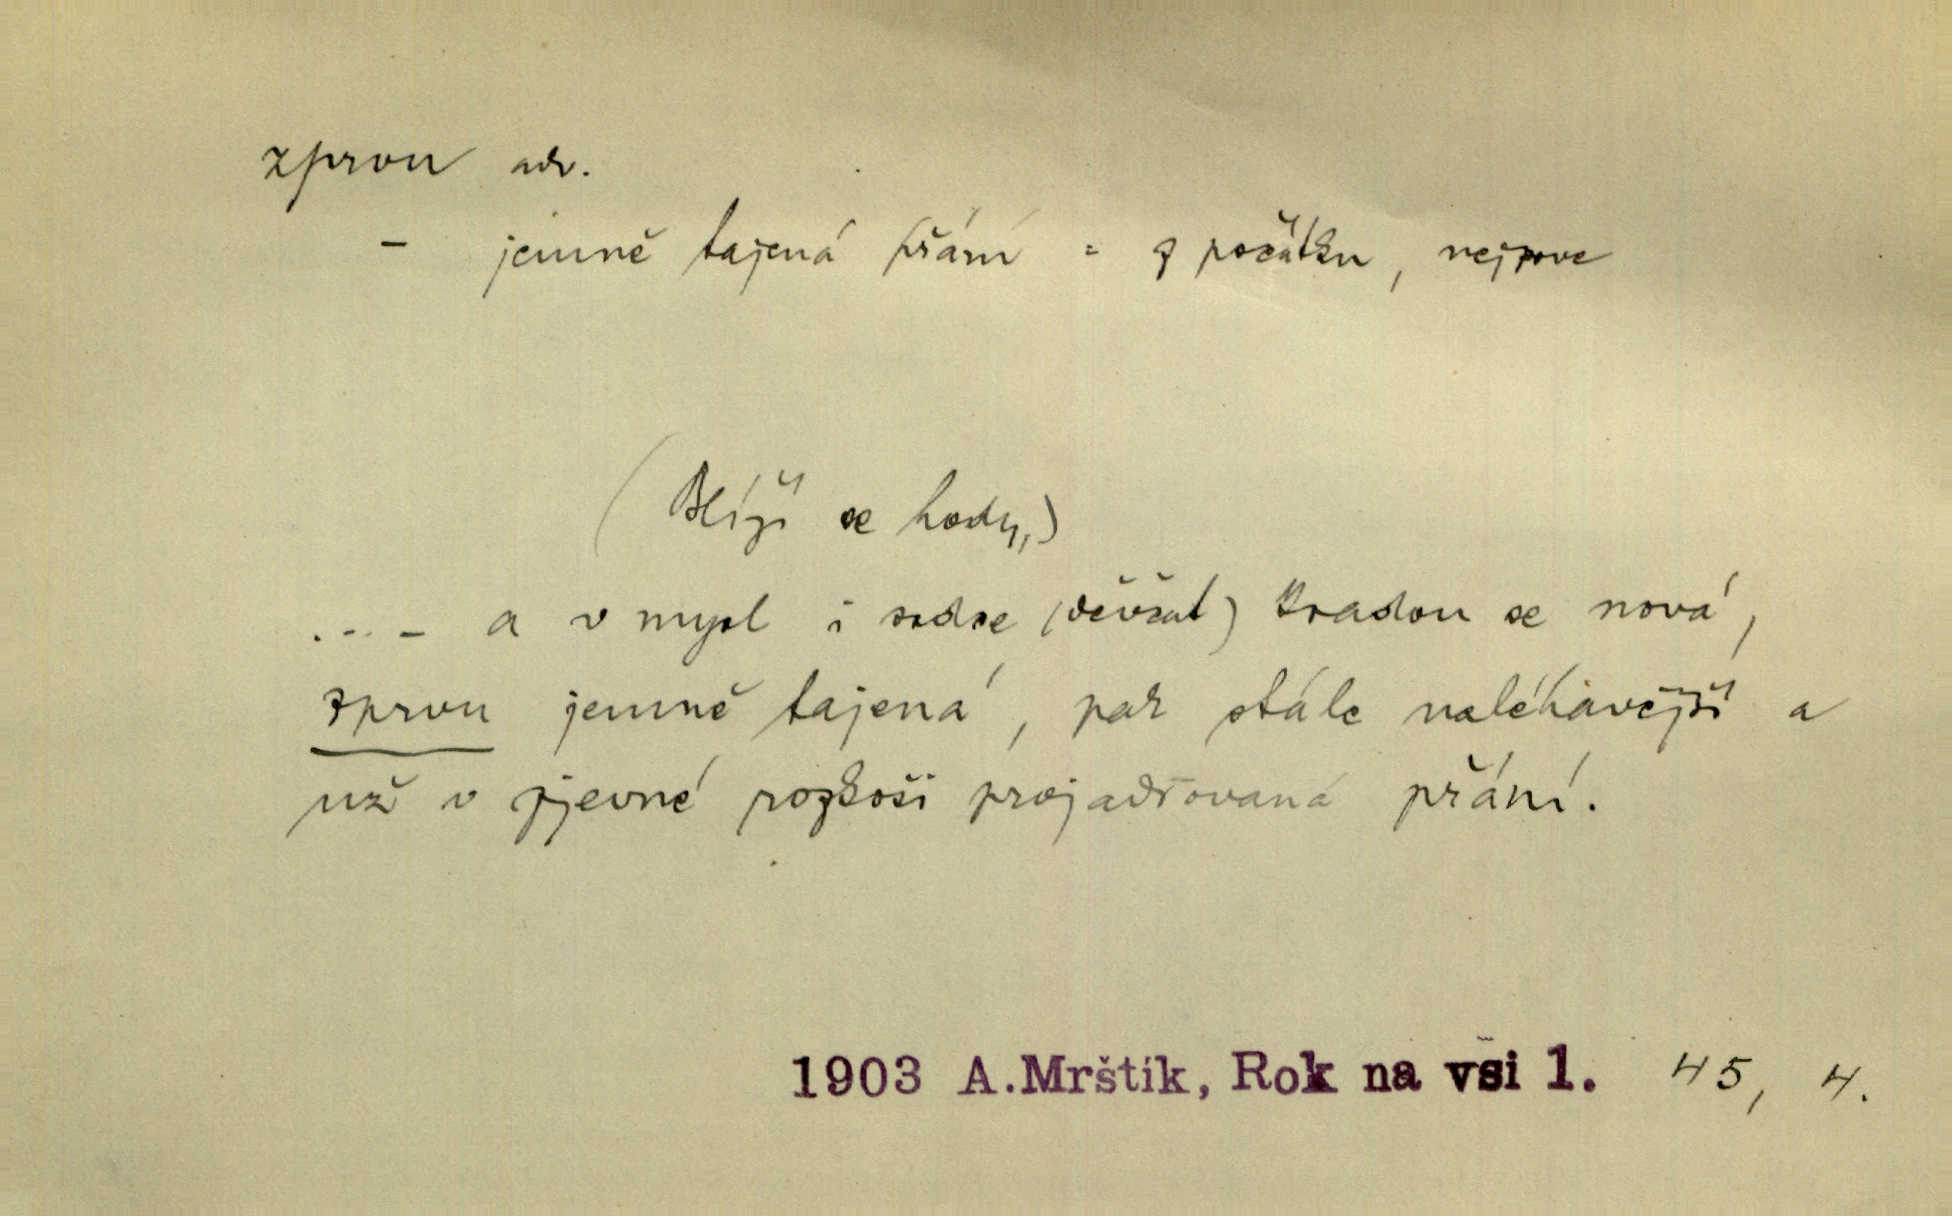 zprvu adv.
– jemně tajená přání = z počátku, nejprve
(Blíží se hody,)
.--- a v mysl i srdce (děvčat) kradou se nová,
zprvu jemně tajená, pak stále naléhavější a
už v zjevné rozkoši projadřovaná přání.
1903 A.Mrštík, Rok na vsi 1. 45, 4.